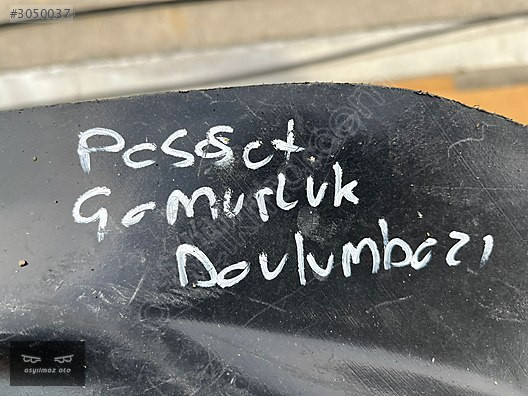 #3050037
Passat
Çamurluk
Davlumbazı
asyilmaz oto